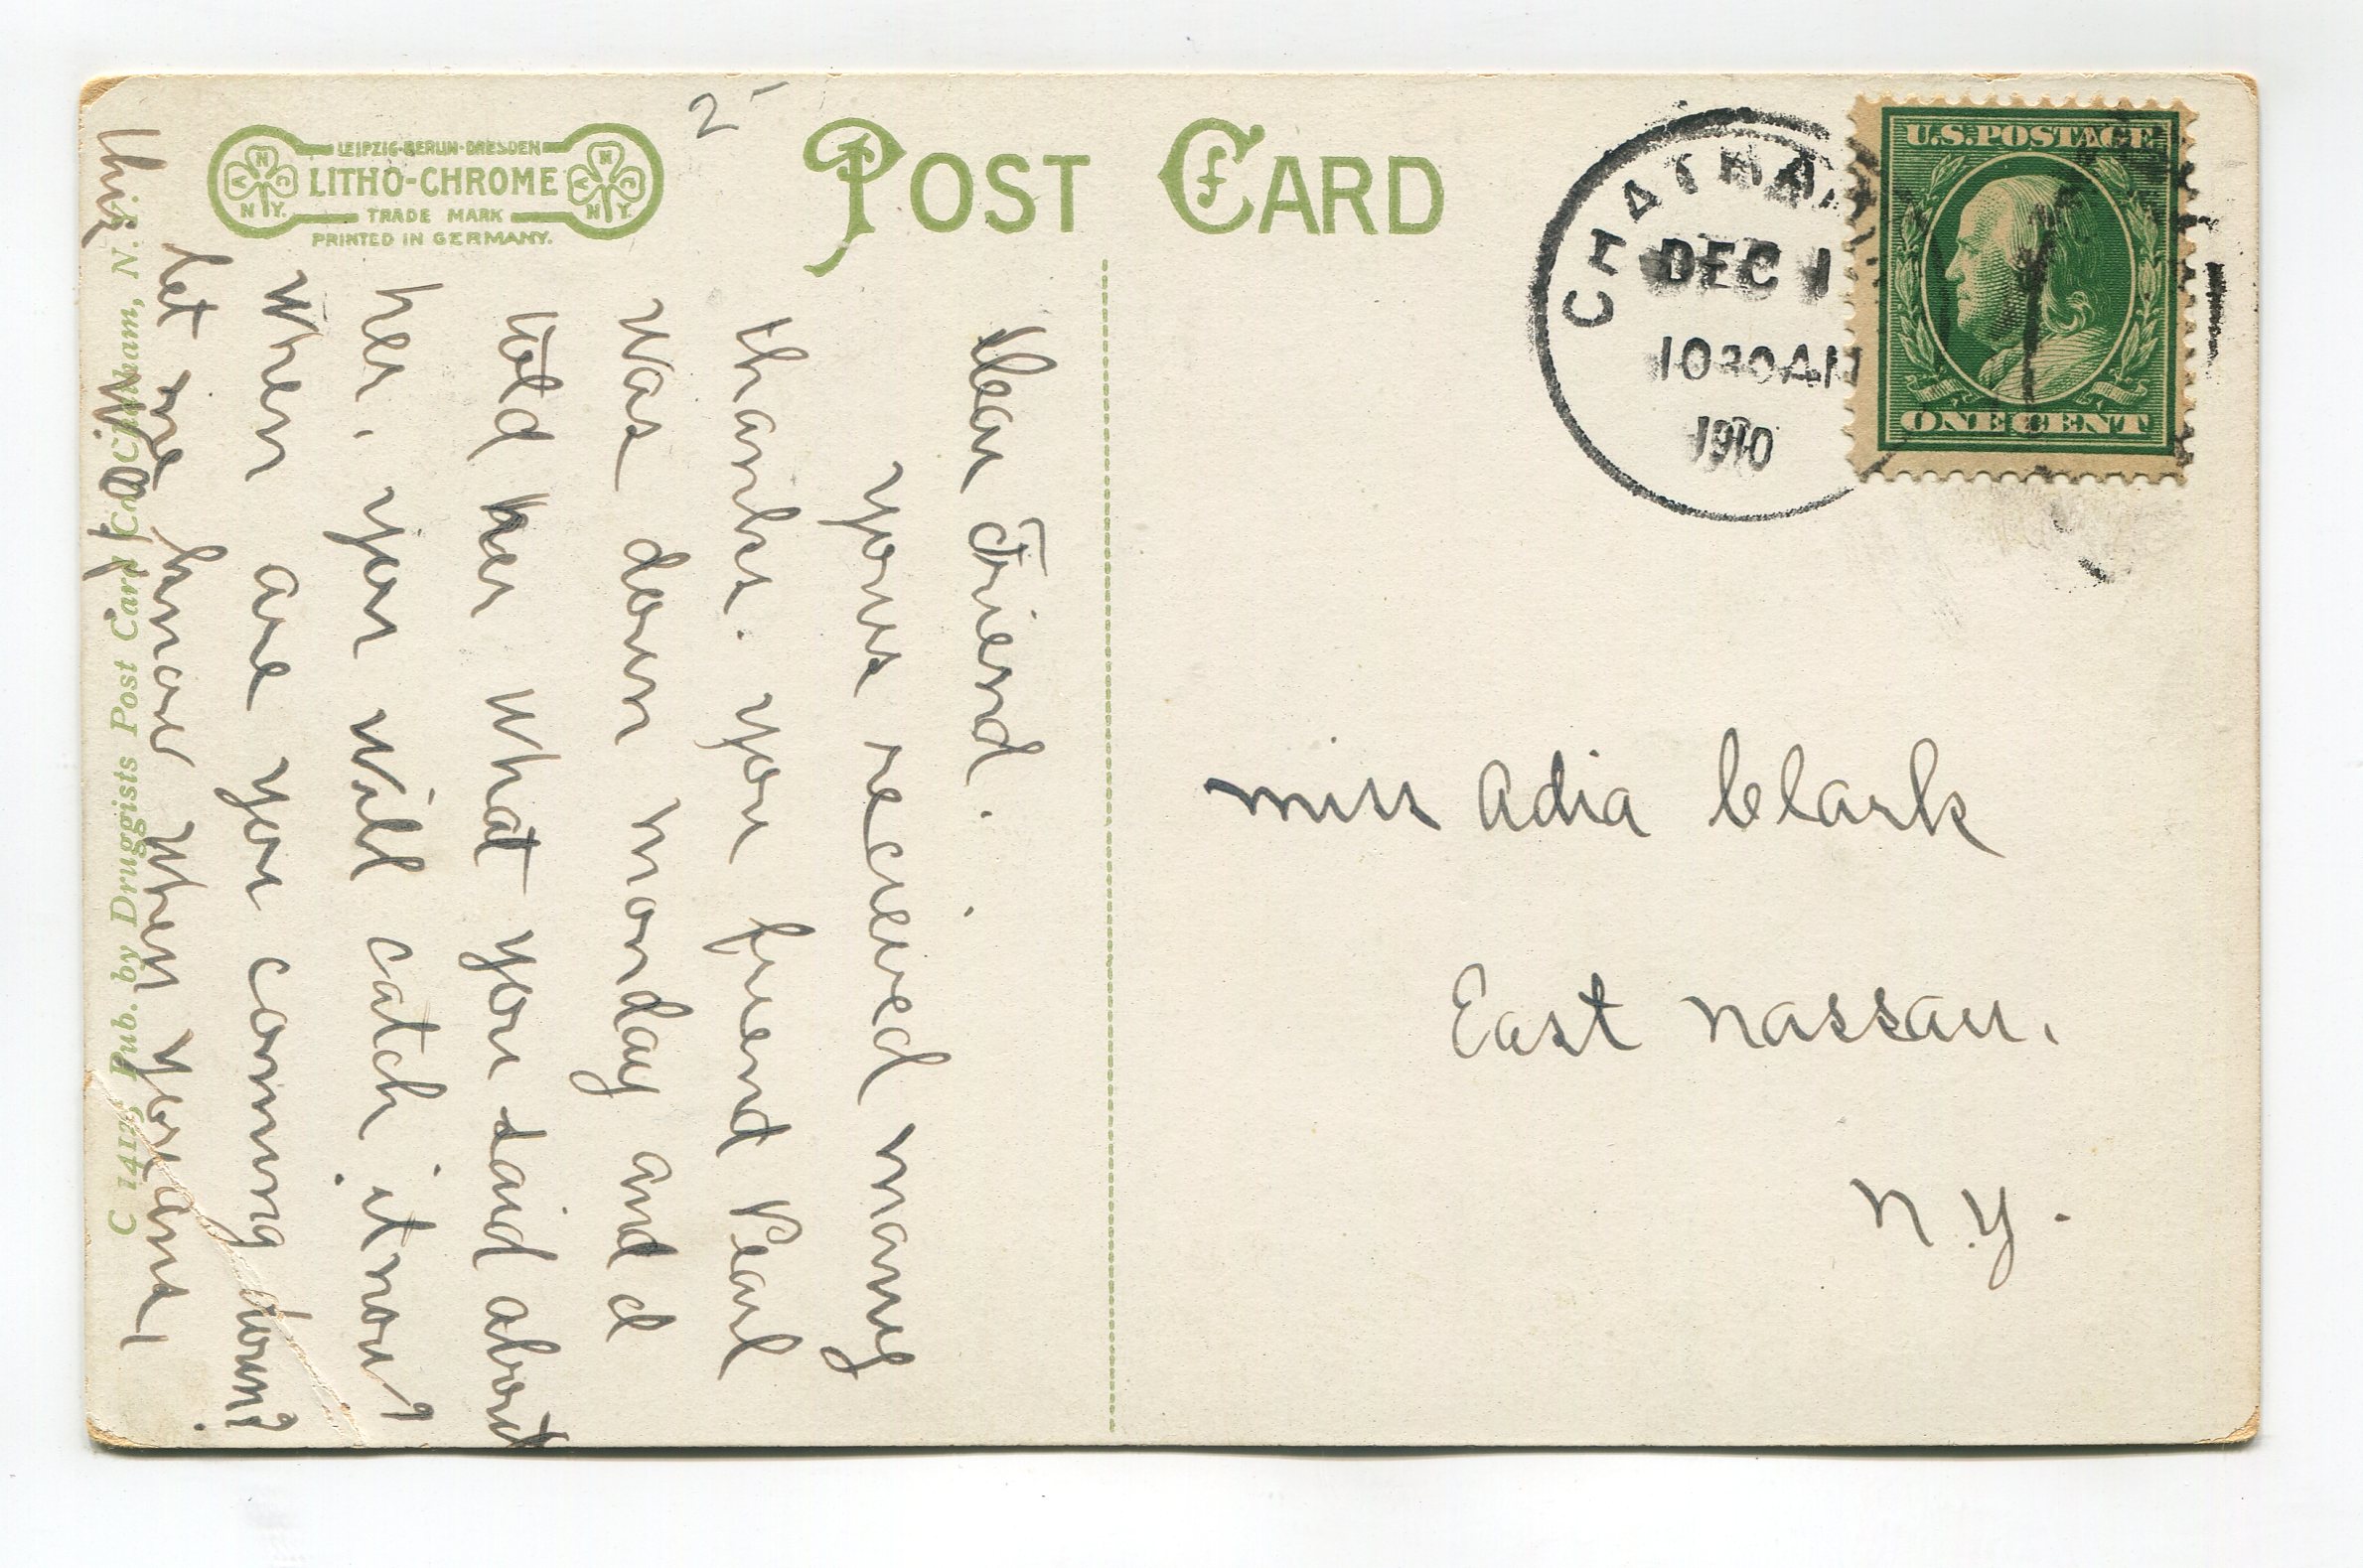 LEIPZIG·BERLIN·DRESDEN
LITHO-CHROME
TRADE MARK
PRINTED IN GERMANY.
N
N.Y.
N
N.Y.
2
POST CARD
CHATHA
DEC 1
1030AM
1910
U.S.POSTAGE
ONE CENT
Dear Friend.
yours recieved many
thanks. you friend Pearl
was down monday and I
told her what you said about
her. you will catch it now?
When are you coming down?
let me know when you come
this
Miss Adia Clark
East Nassau.
N.Y.
C 14175 Pub. by Druggists Post Card Co., Chatham, N. Y.